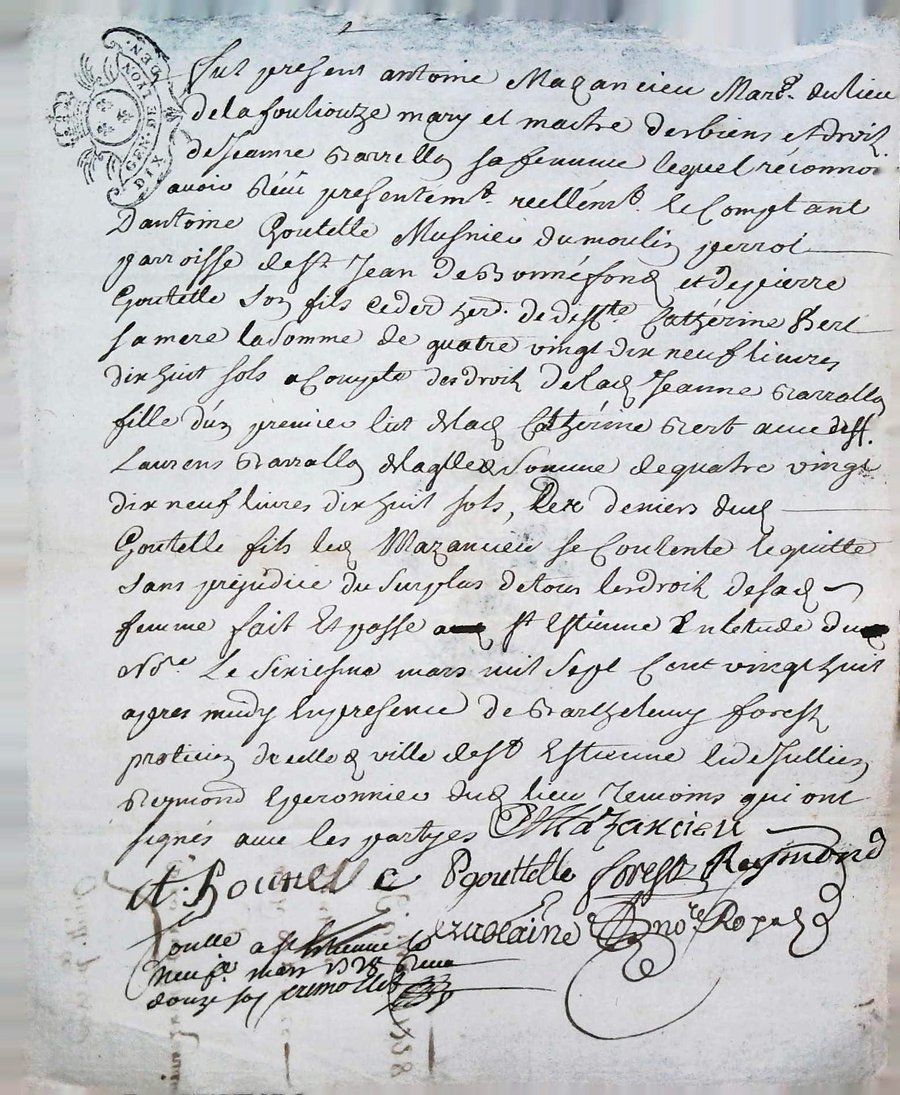 GEN. DE LYON
GEN. DIX
Fut present antoine Mazancieu Marc.d du lieu
de la fouliouze mary et maitre des biens et droit
de Jeanne sa femme lequel réconnoi
avoir présentem.t reellem.t le Comptant
D'antoine Goutelle Musnier du moulin perrot
parroisse de s.t Jean de Bonnéfond et de pierre
Goutelle son fils de deff.te Cathérine Bert
sa mere la somme de quatre vingt dix neuf livres
dix huit sols a Compte des droit de lad Jeanne
fille d'un premier lit de lad Cathérine Bert avec deff.
Laurens de laq'lle somme de quatre vingt
dix neuf livres dix huit sols, deniers dud
Goutelle fils led Mazancieu se Contente le quitte
sans préjudice du surplus de tous les droit de sad
femme fait et passé s.t Estienne En l'etude du
No.re Le sixiesme mars mil sept Cent vingt huit
apres midy En presence de Barthelemy forest
praticien de ville de s.t Estienne de Jullien
Reymond Eperonnier dud lieu Temoins qui ont
signés avec les partyes Mazancieu
At. Goutelle Pgouttelle forest Reymond
no.re Royal
a st Estienne le
neuf mars 1728
douze sols